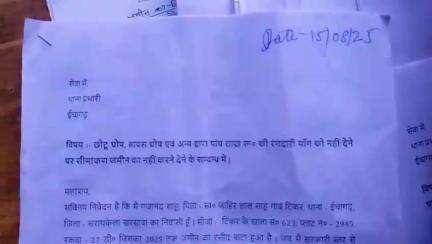 जमीन का
Date- 15/08/25
सेवा में
थाना प्रभारी
ईचागढ़
विषय :- छोटू घोष, तापस घोष एवं अन्य द्वारा पांच लाख रू० की रंगदारी माँग को नहीं देने
पर सीमांकन जमीन का नहीं करने देने के सम्बन्ध में।
महाशय,
सविनय निवेदन है कि मैं गजानंद साहु, पिता - स्व० जाहिर लाल साहु गाव टिकर, थाना - ईचागढ़,
जिला - सरायकेला खरसावां का निवासी हूँ। मौजा - टिकर के खाता सं० 623, प्लाट नं० - 2945,
रकवा - 37 डी० जिसका 2025 तक जमीन का रसीद काटा हुआ है। जब मैं सरकारी स्तर से
सेवा में
थाना प्र
ईचागढ़